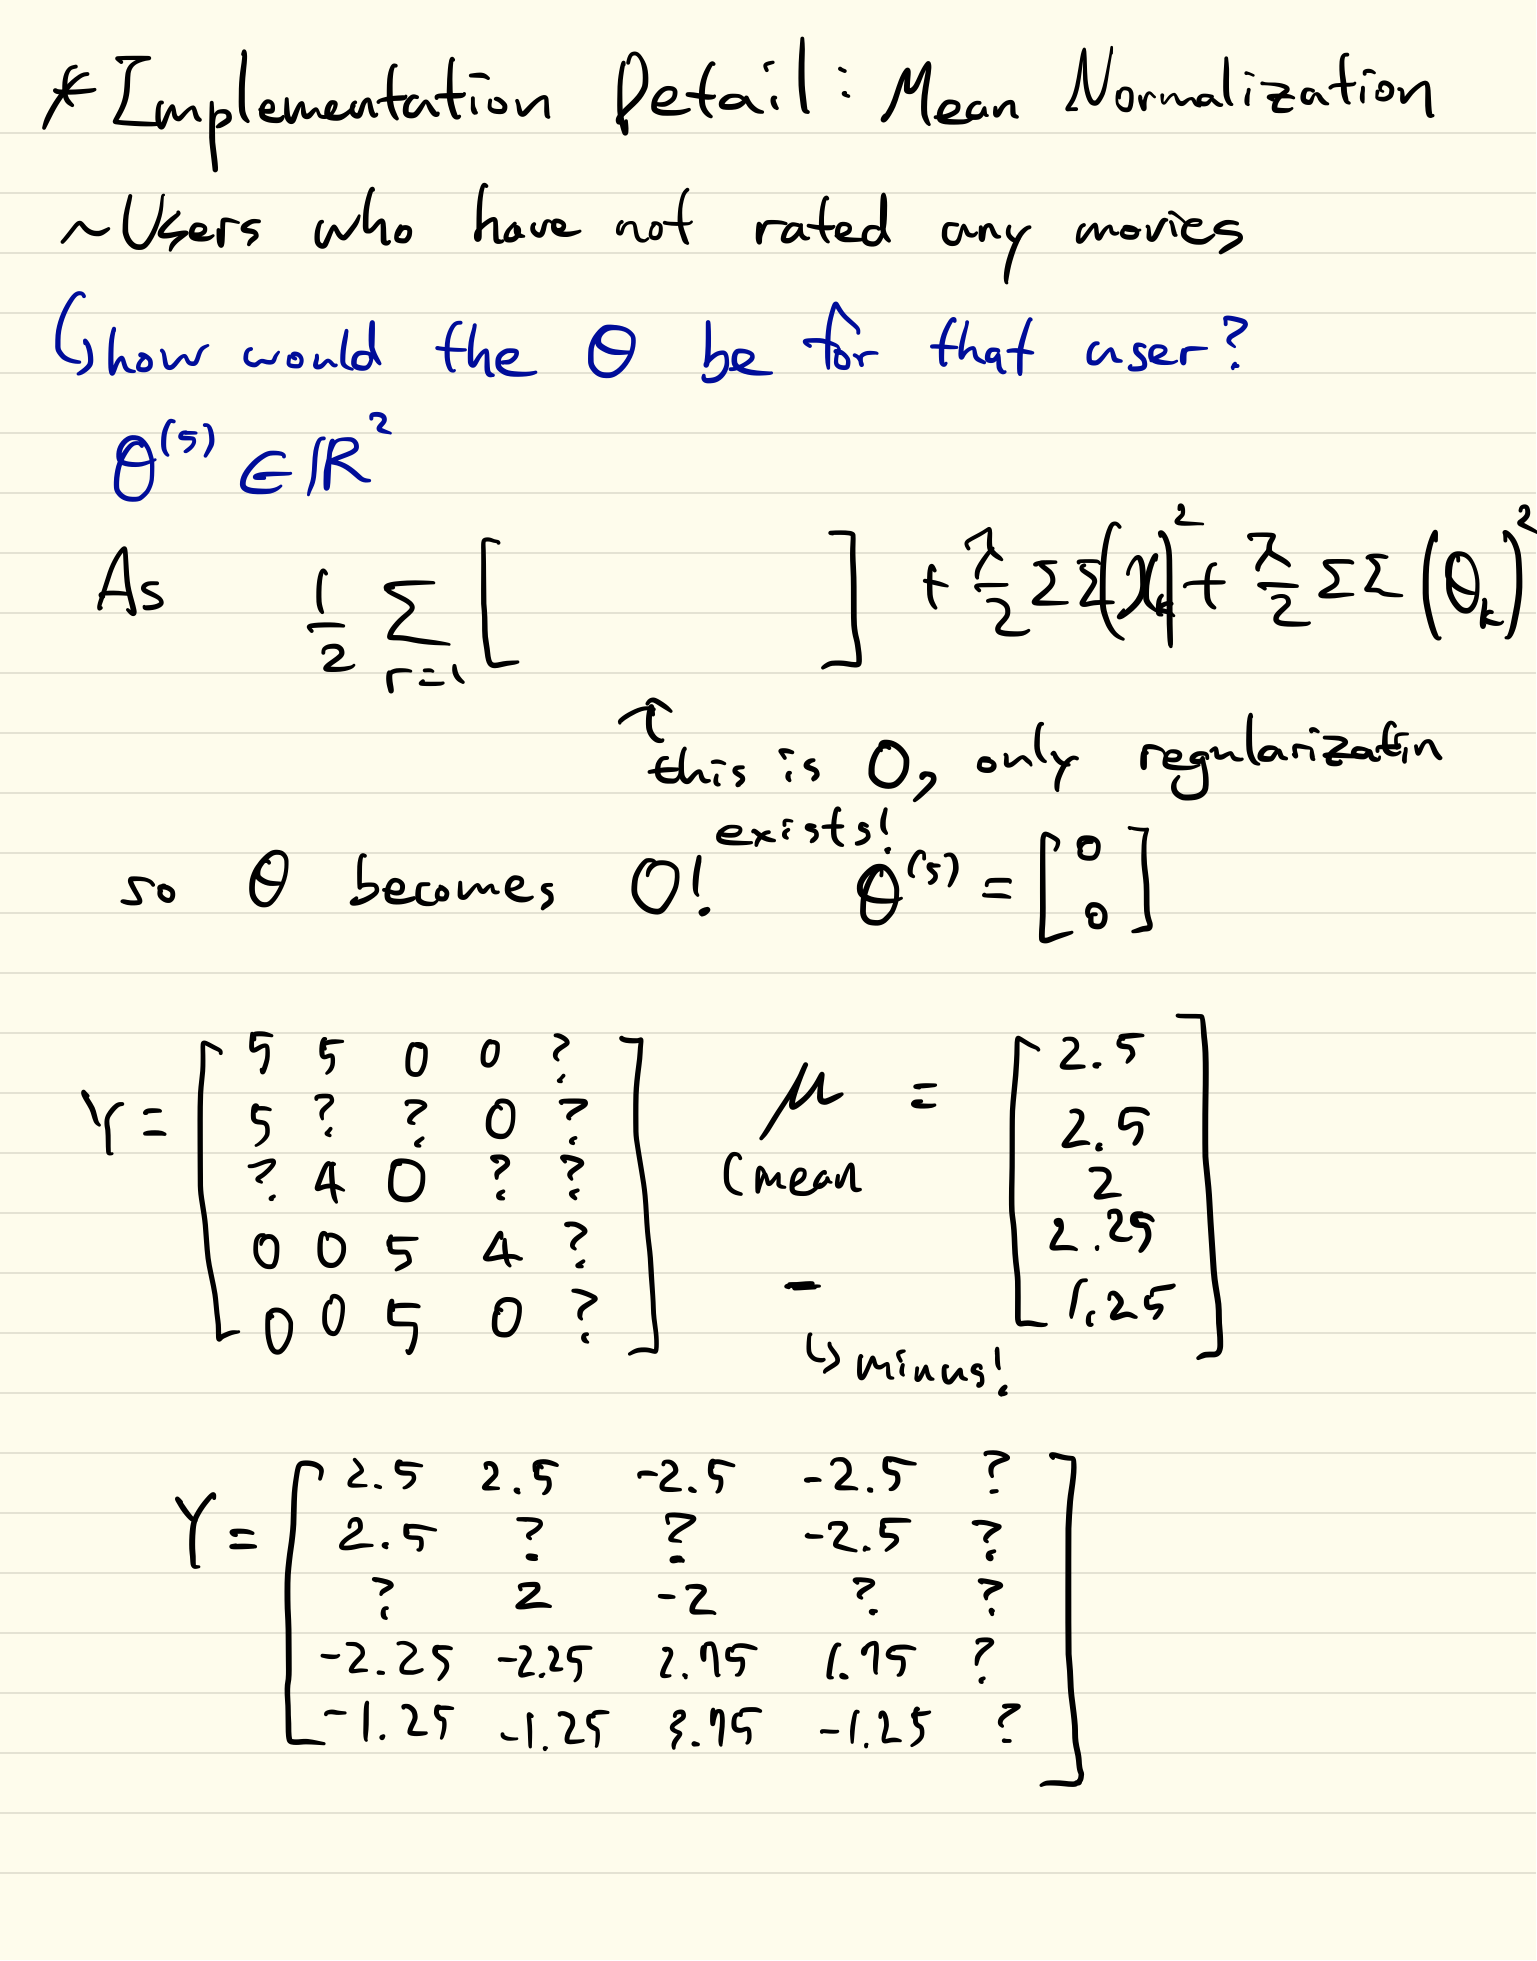 * Implementation Detail: Mean Normalization
~Users who have not rated any movies
↳ how would the θ be for that user?
θ^(5) ∈ ℝ^2
As 1/2 Σ_{r=1} [ ] + λ/2 ΣΣ(x_k)^2 + λ/2 ΣΣ (θ_k)^2
↑ this is 0, only regularizatin
exists!
so θ becomes 0! θ^(5) = [0 0]
Y = [5 5 0 0 ?
5 ? ? 0 ?
? 4 0 ? ?
0 0 5 4 ?
0 0 5 0 ?]
μ = [2.5
(mean
2.5
2
2.25
1.25]
-
↳ minus!
Y = [2.5 2.5 -2.5 -2.5 ?
2.5 ? ? -2.5 ?
? 2 -2 ? ?
-2.25 -2.25 2.75 1.75 ?
-1.25 -1.25 3.75 -1.25 ?]